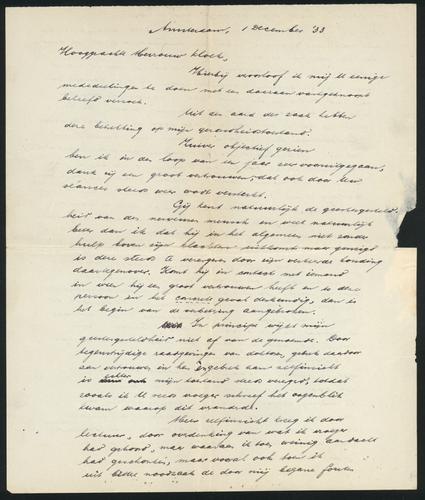 Amsterdam, 1 December '33
Hooggeachte Mevrouw Kloek,
Hierbij veroorloof ik mij U eenige
mededeelingen te doen met een daaraan vastgeknoopt
beleefd verzoek.
Uit den aard der zaak hebben
deze betrekking op mijn gezondheidstoestand.
Zuiver objectief gezien
ben ik in den loop van een jaar zeer vooruitgegaan,
dank zij een groot vertrouwen, dat ook door Uw
séances steeds weer wordt versterkt.
Gij kent natuurlijk de geestesgesteld-
heid van den nerveuzen mensch en weet natuurlijk
beter dan ik dat hij in het algemeen niet zonder
hulp boven zijn klachten uitkomt maar geneigd
is deze steeds te verergeren door zijn verkeerde houding
daartegenover. Komt hij in contact met iemand
in wien hij een groot vertrouwen heeft en is deze
persoon in het geval deskundig, dan is
het begin van de verbetering aangebroken.
In principe wijkt mijn
geestesgesteldheid niet af van de genoemde. Door
tegenstrijdige raadgevingen van doktoren, gebrek daardoor
aan vertrouwen in hen, gebrek aan zelfinzicht
is echter mijn toestand steeds verergerd, totdat
zooals ik U reeds vroeger schreef het oogenblik
kwam waarop dit veranderde.
Meer zelfinzicht kreeg ik door
lectuur, door overdenking van wat ik vroeger
had gehoord, maar waaraan ik toen weinig aandacht
had geschonken, maar vooral ook toen ik
uit de noodzaak de door mij begane fouten